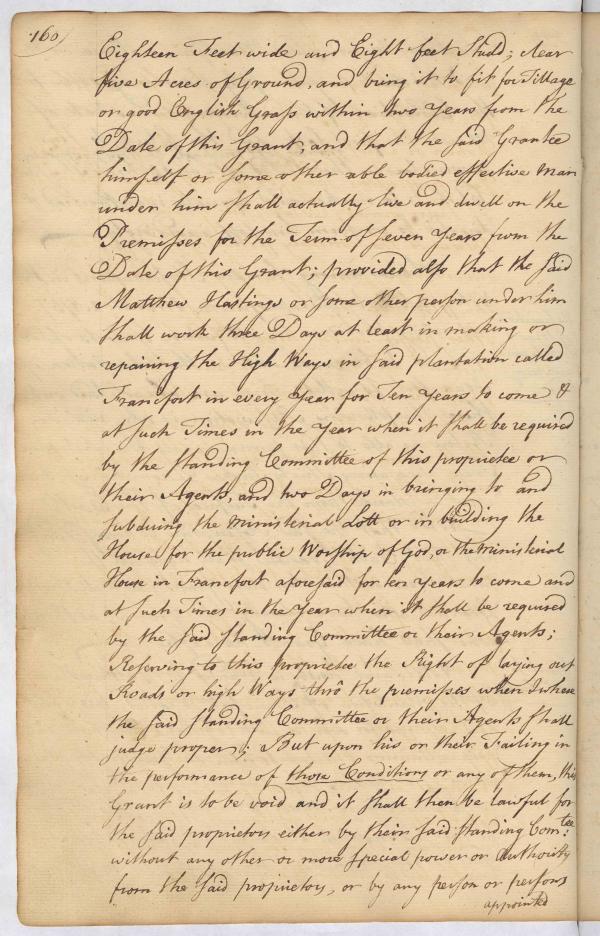 160
Eighteen Feet wide and Eight feet Studd; clear
five Acres of Ground, and bring it to fit for Tillage
or good English Grass within two Years from the
Date of this Grant, and that the said Grantee
himself or some other able bodied effective man
under him shall actually live and dwell on the
Premisses for the Term of seven Years from the
Date of this Grant; provided also that the said
Matthew Hastings or some other person under him
shall work three Days at least in making or
repairing the High Ways in said plantation called
Francfort in every Year for Ten Years to come &
at such Times in the Year when it shall be required
by the standing Committee of this proprietee or
their Agents, and two Days in bringing to and
subduing the ministerial Lott or in building the
House for the public Worship of God, or the ministerial
House in Francfort aforesaid for ten Years to come and
at such Times in the Year when it shall be required
by the said standing Committee or their Agents;
Reserving to this proprietee the Right of laying out
Roads or high Ways thrô the premisses when & where
the said standing Committee or their Agents shall
judge proper; But upon his or their Failing in
the performance of those Conditions or any of them, this
Grant is to be void and it shall then be lawful for
the said proprietors either by their said standing Com:tee
without any other or more special power or authority
from the said proprietors, or by any person or persons
appointed